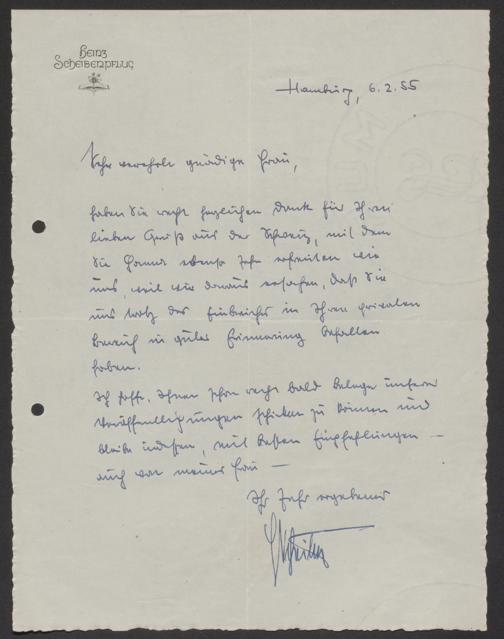 Heinz
Scheibenpflug
Hamburg, 6.2.55
Sehr verehrte gnädige Frau,
haben Sie recht herzlichen Dank für Ihren
lieben Gruß aus der Schweiz, mit dem
Sie Hanna ebenso sehr erfreuten wie
uns, weil wir daraus ersahen, daß Sie
uns trotz des Einbruches in Ihren privaten
Bereich in guter Erinnerung behalten
haben.
Ich hoffe, Ihnen schon recht bald Belege unserer
Veröffentlichungen schicken zu können und
bleibe indessen, mit besten Empfehlungen –
auch von meiner Frau –
Ihr sehr ergebener